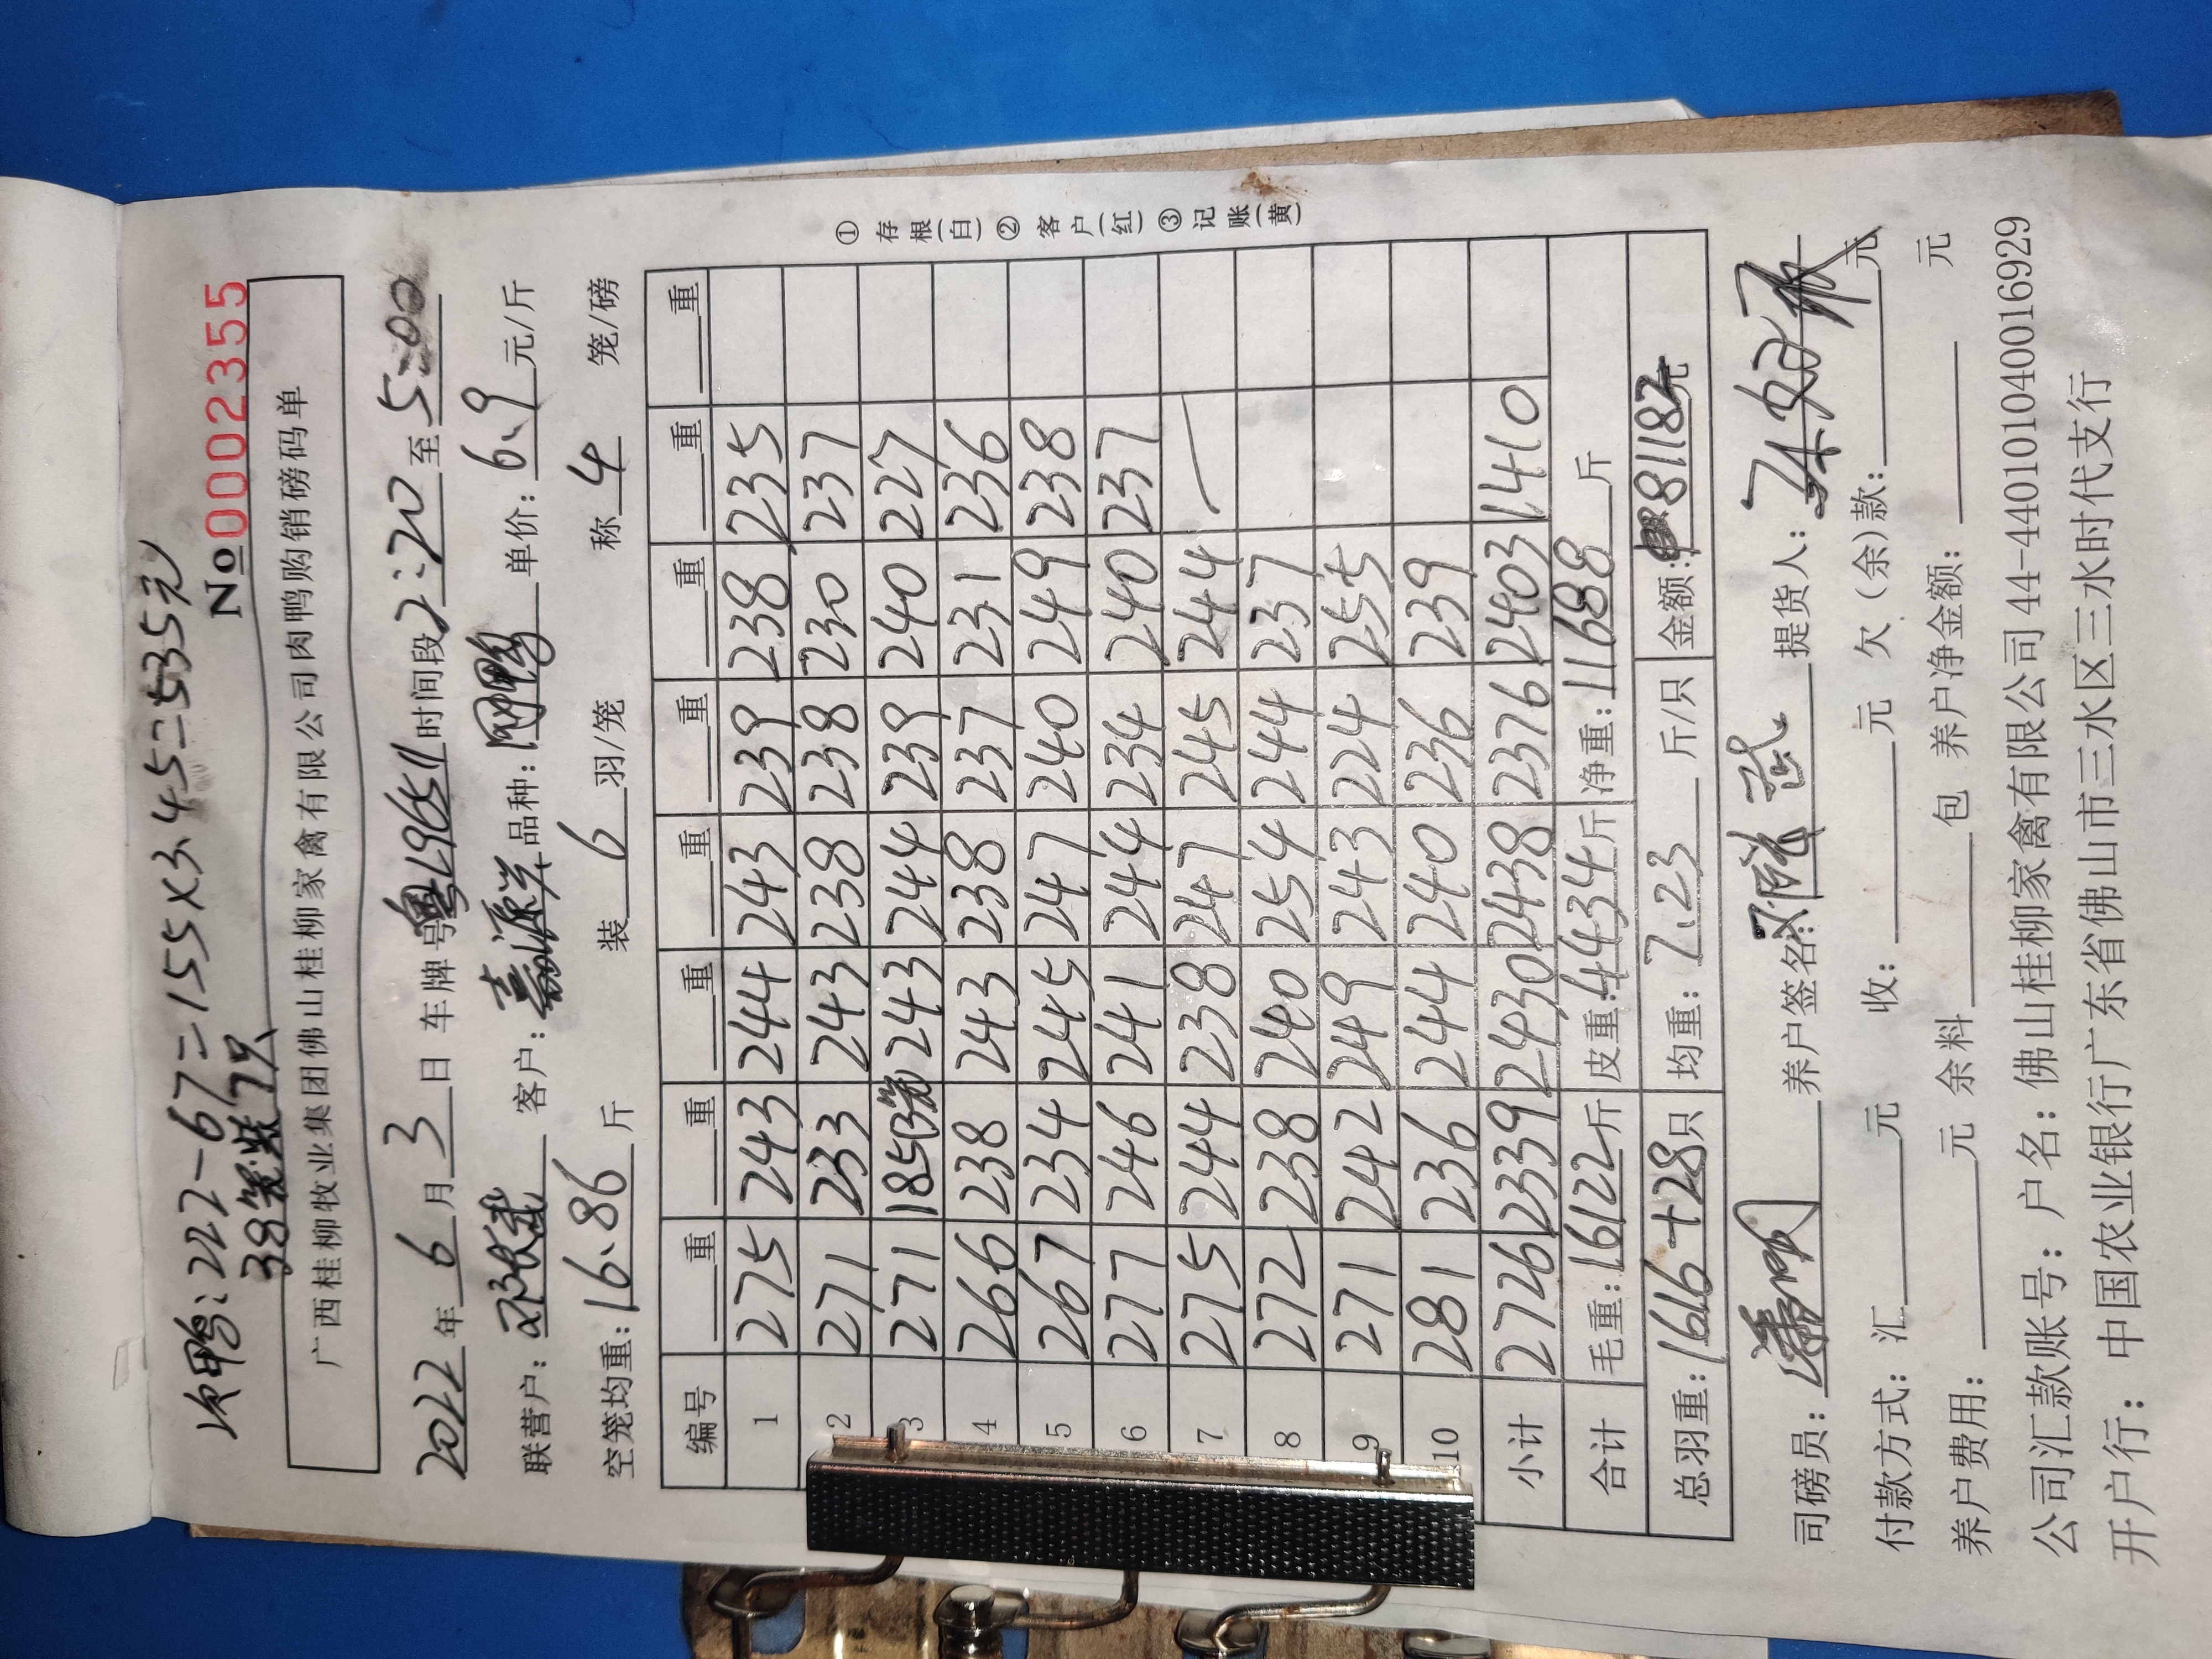 次鸭:222-67=155×3.45=535元
38笼装7只
№0002355
广西桂柳牧业集团佛山桂柳家禽有限公司肉鸭购销磅码单
2022年6月3日 车牌号粤L96511时间段2:20至5:00
联营户: 客户:嘉源洋品种: 单价:6.9元/斤
空笼均重:16.86斤 装6羽/笼 称4笼/磅
编号 重 重 重 重 重 重 重 重
1 275 243 244 243 239 238 235
2 271 233 243 238 238 230 237
3 271 185(3笼) 243 244 239 240 227
4 266 238 243 238 237 231 236
5 267 234 245 247 240 249 238
6 277 246 241 244 234 240 237
7 275 244 238 247 245 244 —
8 272 238 240 254 244 237
9 271 242 249 243 224 255
10 281 236 244 240 236 239
小计 2726 2339 2430 2438 2376 2403 1410
合计 毛重:16122斤 皮重:4434斤 净重:11688斤
总羽重:1616+28只 均重:7.23斤/只 金额:81182元
①存根(白)②客户(红)③记账(黄)
司磅员: 养户签名: 提货人:
付款方式:汇 元 收: 元 欠(余)款: 元
养户费用: 元 余料 包 养户净金额: 元
公司汇款账号:户名:佛山桂柳家禽有限公司44-440101040016929
开户行:中国农业银行广东省佛山市三水区三水时代支行